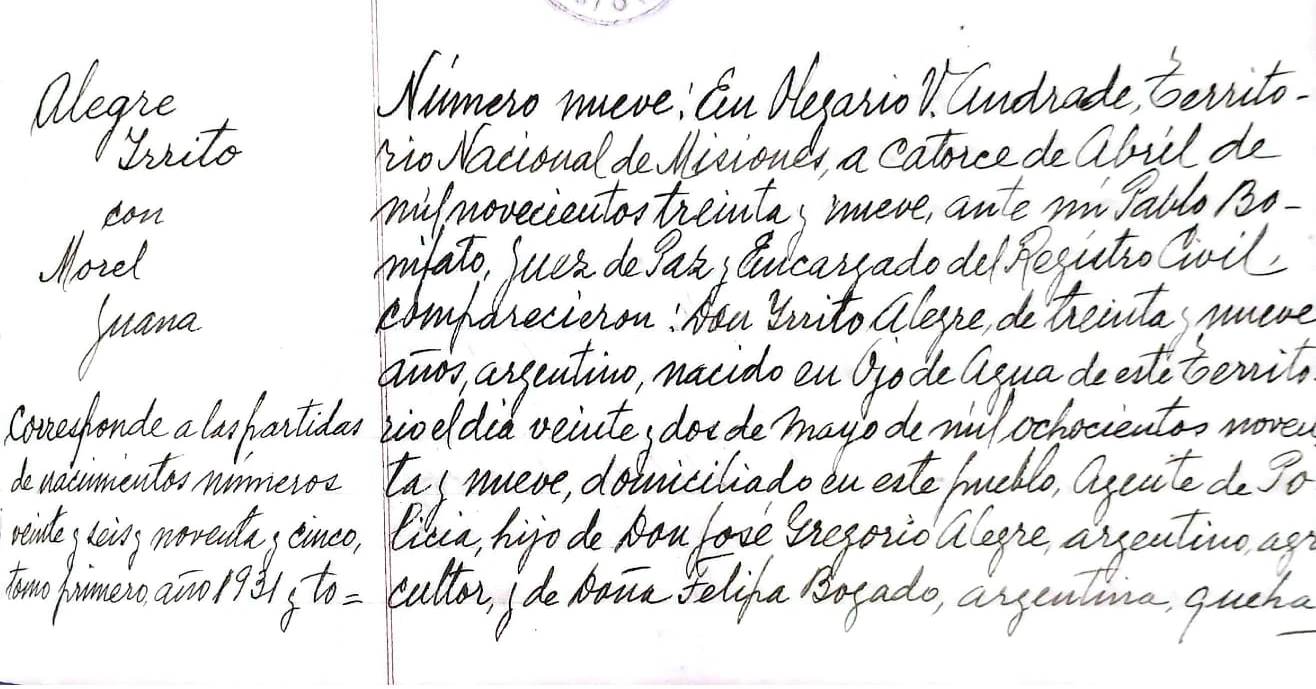 Alegre
Yrrito
con
Morel
Juana
Corresponde a las partidas
de nacimientos números
veinte y seis y noventa y cinco,
tomo primero, año 1931 y to=
Número nueve: En Olegario V. Andrade, Territo-
rio Nacional de Misiones, a catorce de Abril de
mil novecientos treinta y nueve, ante mi Pablo Bo-
nifato, Juez de Paz y Encargado del Registro Civil,
comparecieron: Don Yrrito Alegre, de treinta y nueve
años, argentino, nacido en Ojo de Agua de este Territo-
rio el dia veinte y dos de Mayo de mil ochocientos noven
ta y nueve, domiciliado en este pueblo, Agente de Po
licia, hijo de Don José Gregorio Alegre, argentino, agr
cultor, y de Doña Felipa Bogado, argentina, queha